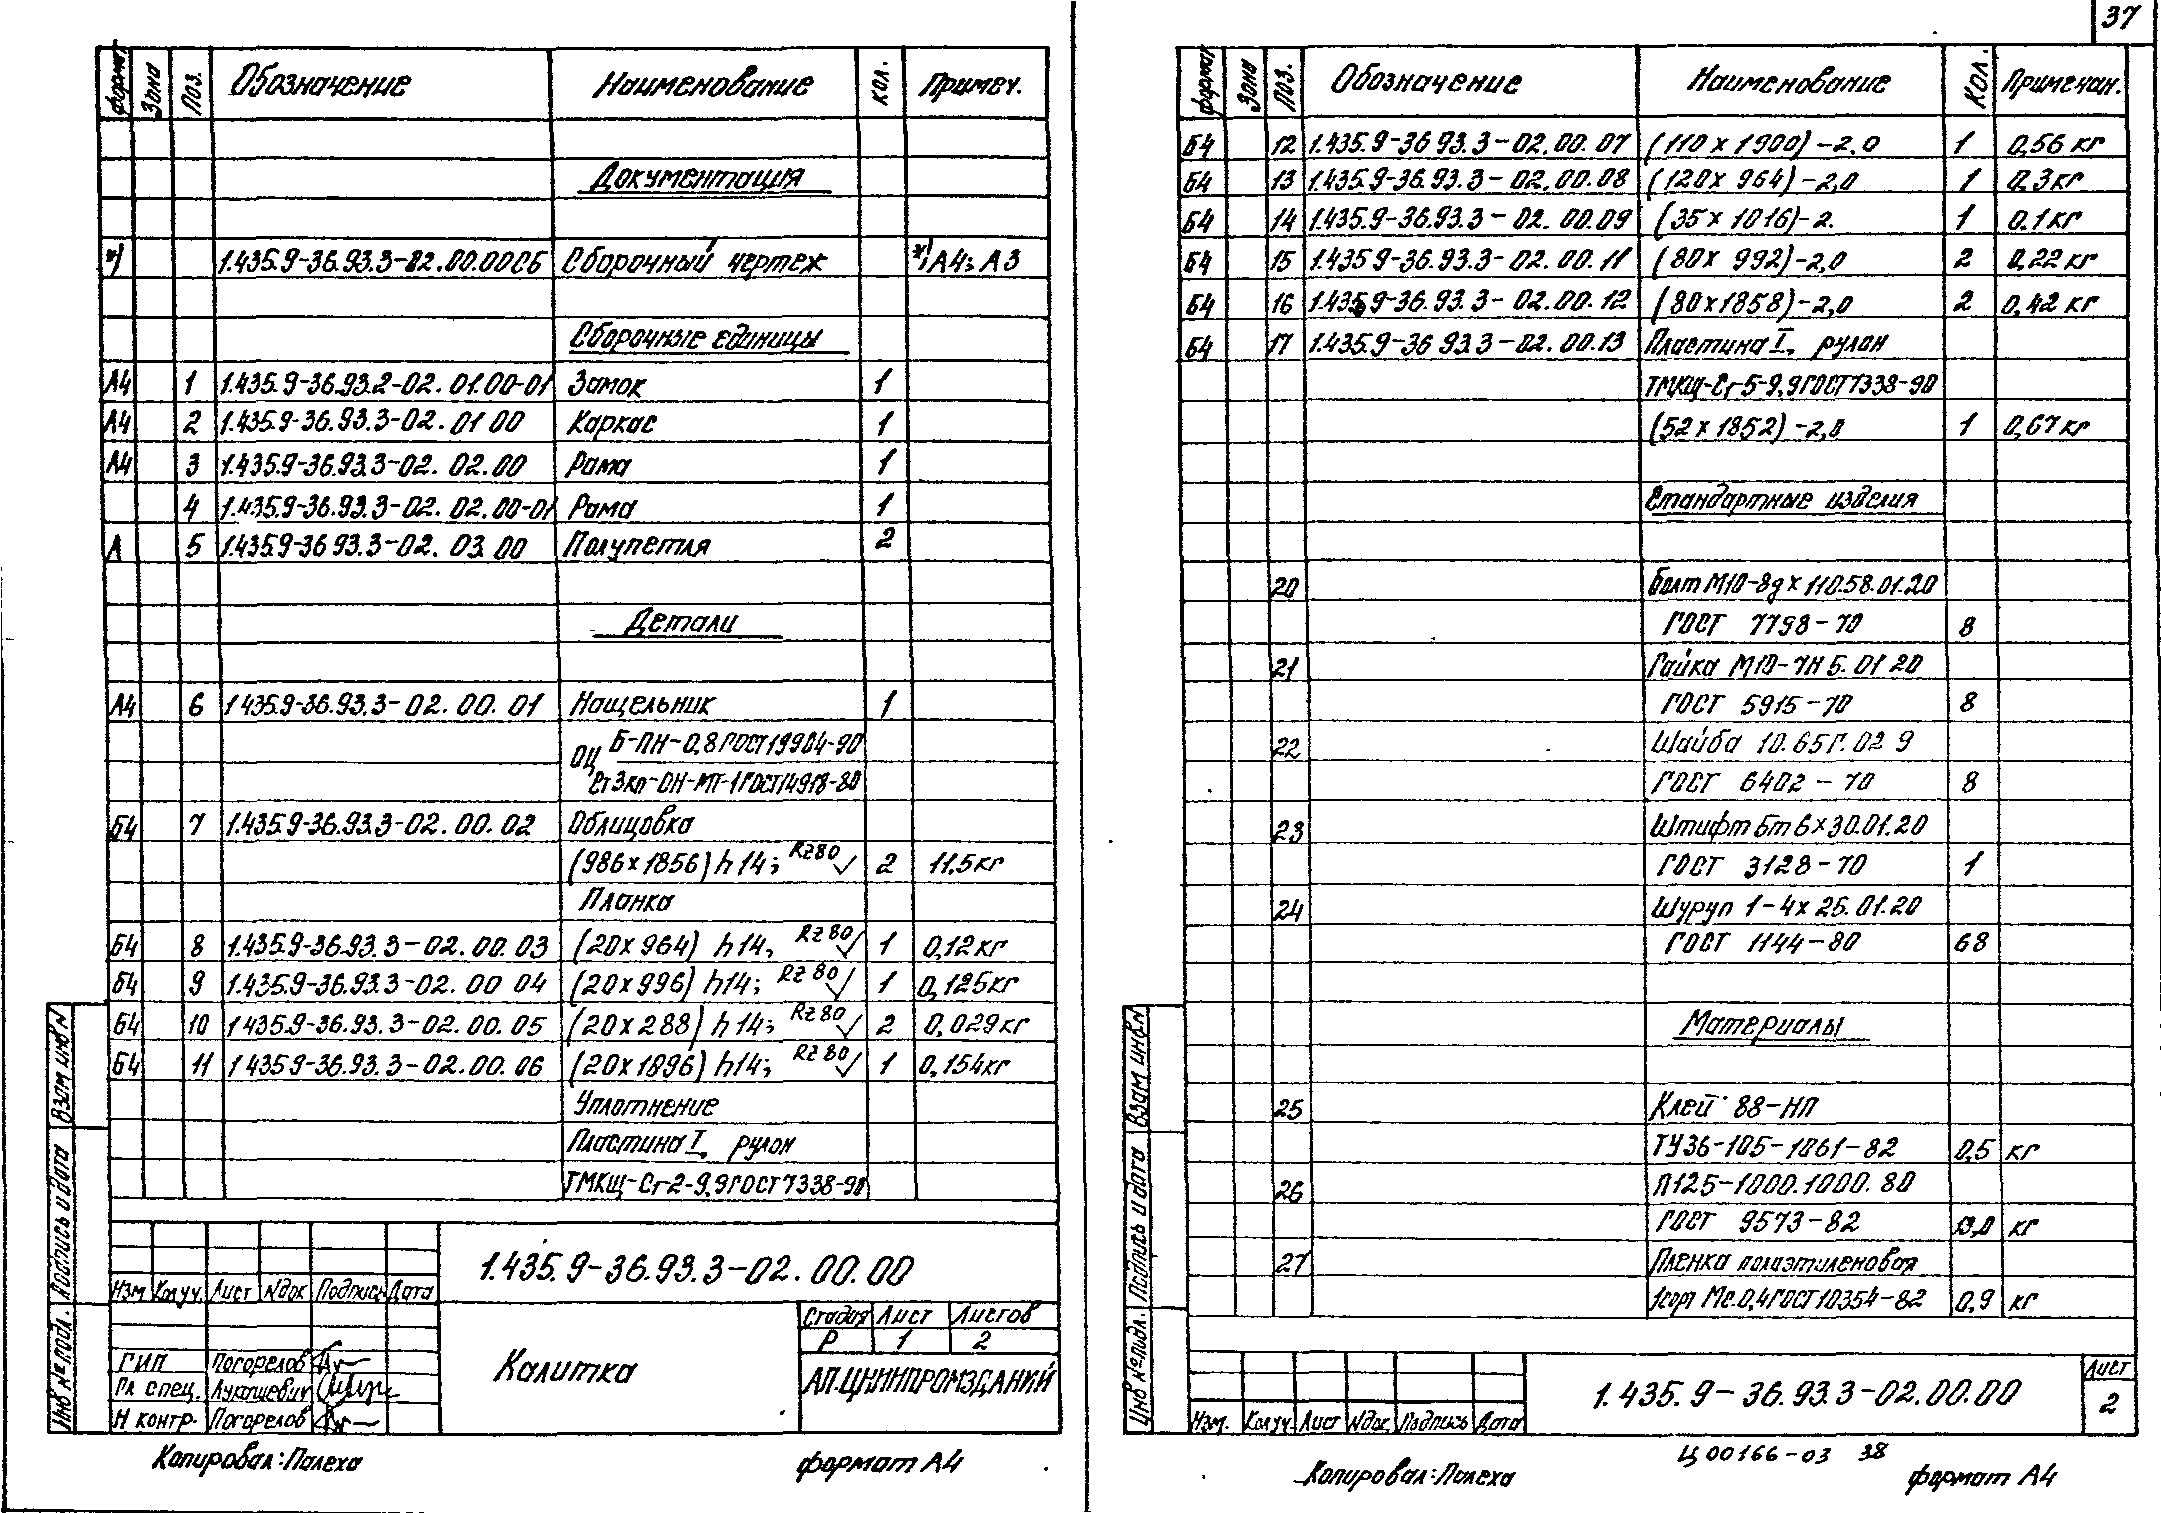 37
формат Зона Поз. Обозначение Наименование кол. Примеч.
Документация
*) 1.435.9-36.93.3-02.00.00СБ Сборочный чертеж *) А4; А3
Сборочные единицы
А4 1 1.435.9-36.93.2-02.01.00-01 Замок 1
А4 2 1.435.9-36.93.3-02.01 00 Каркас 1
А4 3 1.435.9-36.93.3-02.02.00 Рама 1
4 1.435.9-36.93.3-02.02.00-01 Рама 1
А 5 1.435.9-36 93.3-02.03.00 Полупетля 2
Детали
А4 6 1 435.9-36.93.3-02.00.01 Нащельник 1
ОЦ Б-ПН-0,8 ГОСТ 19904-90
Ст3кп-ОН-МТ-1 ГОСТ 14918-80
Б4 7 1.435.9-36.93.3-02.00.02 Облицовка
(986х1856) h14; Rz80 2 11,5кг
Планка
Б4 8 1.435.9-36.93.3-02.00.03 (20х964) h14; Rz80 1 0,12кг
Б4 9 1.435.9-36.93.3-02.00 04 (20х996) h14; Rz80 1 0,125кг
Б4 10 1 435.9-36.93.3-02.00.05 (20х288) h14; Rz80 2 0,029кг
Б4 11 1 435 9-36.93.3-02.00.06 (20х1896) h14; Rz80 1 0,154кг
Уплотнение
Пластина I, рулон
ТМКЩ-С г2-9,9 ГОСТ 7338-90
1.435.9-36.93.3-02.00.00
Изм Кол.уч. Лист Nдок Подпись Дата
Калитка
Стадия Лист Листов
Р 1 2
АП.ЦНИИПРОМЗДАНИЙ
ГИП Погорелов
Гл спец. Лукашевич
Н контр. Погорелов
Взам инв N
Подпись и дата
Инв № подл.
Копировал: Палеха
формат А4
формат Зона Поз. Обозначение Наименование Кол. Примечан.
Б4 12 1.435.9-36 93.3-02.00.07 (110 х 1900)-2.0 1 0,56 кг
Б4 13 1.435.9-36.93.3-02.00.08 (120х 964)-2,0 1 0,3кг
Б4 14 1.435.9-36.93.3-02.00.09 (35х 1016)-2. 1 0.1кг
Б4 15 1.435 9-36.93.3-02.00.11 (80х 992)-2,0 2 0,22 кг
Б4 16 1.435.9-36.93.3-02.00.12 (80х1858)-2,0 2 0,42 кг
Б4 17 1.435.9-36 93.3-02.00.13 Пластина I, рулон
ТМКЩ-С г5-9,9 ГОСТ 7338-90
(52х1852)-2,0 1 0,67кг
Стандартные изделия
20 Болт М10-8g х 110.58.01.20
ГОСТ 7798-70 8
21 Гайка М10-7Н 5.01 20
ГОСТ 5915-70 8
22 Шайба 10.65Г.02 9
ГОСТ 6402-70 8
23 Штифт Бт 6х30.01.20
ГОСТ 3128-70 1
24 Шуруп 1-4х25.01.20
ГОСТ 1144-80 68
Материалы
25 Клей 88-НП
ТУ36-105-1061-82 0,5 кг
26 П125-1000.1000.80
ГОСТ 9573-82 кг
27 Пленка полиэтиленовая
1сорт Мс.0,4 ГОСТ 10354-82 0,9 кг
Взам инв N
Подпись и дата
Инв № подл.
Изм. Кол.уч. Лист Nдок. Подпись Дата
1.435.9-36.93.3-02.00.00
Лист
2
Ц 00166-03 38
Копировал: Палеха
формат А4